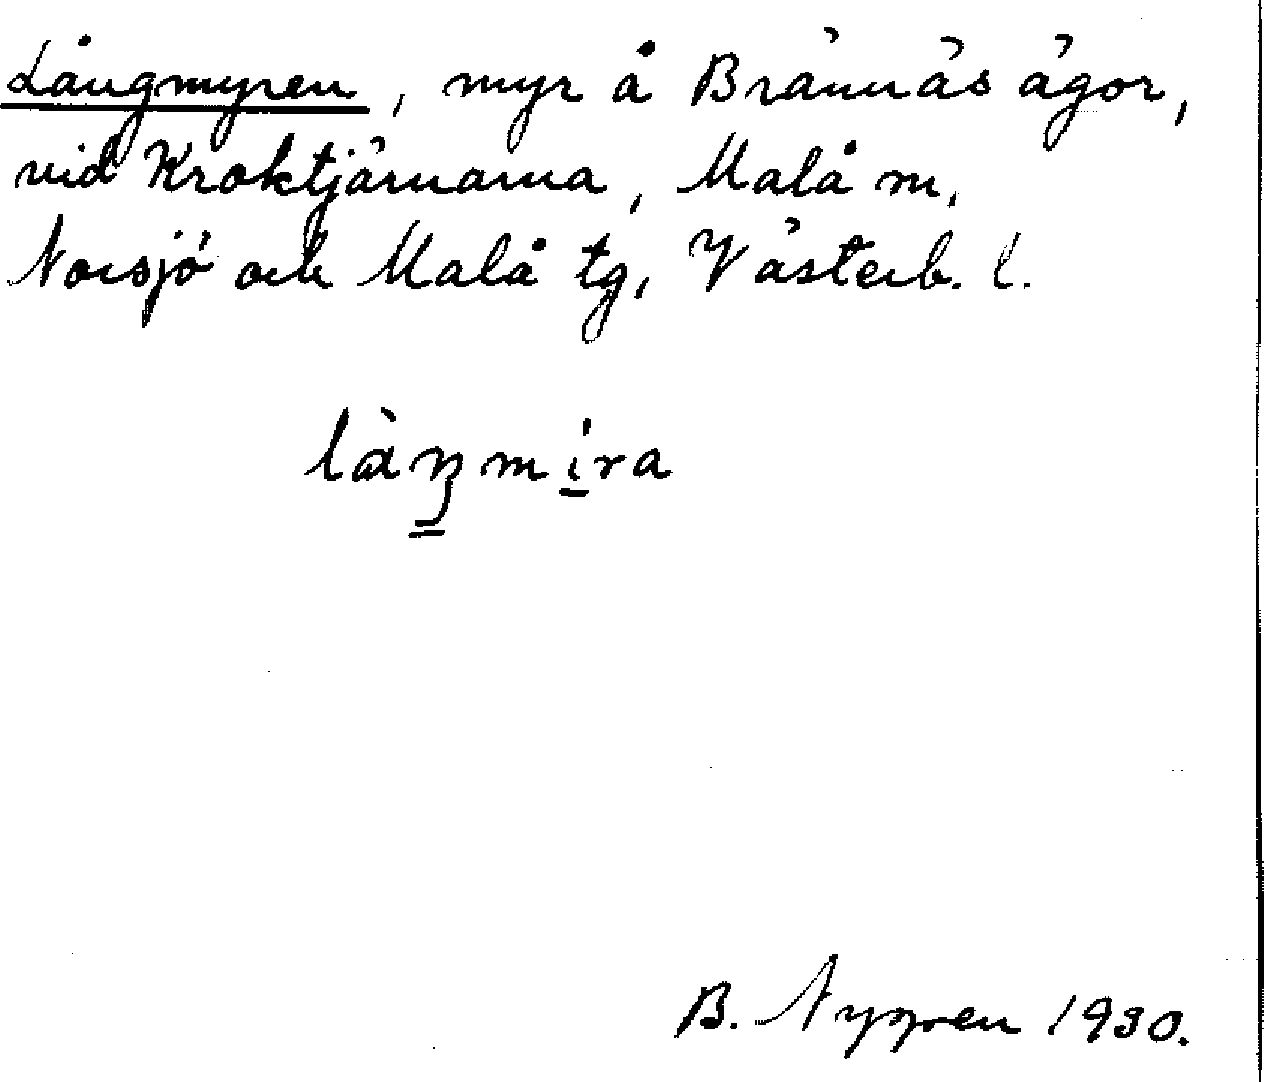 Långmyren, myr å Brännäs ägor,
vid Kroktjärnarna, Malå m,
Norsjö och Malå tg, Västerb. l.
B. Nygren 1930.